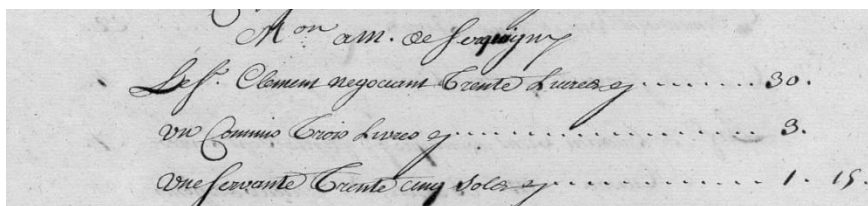 M.on a M. de Serquigny
Le Sr. Clement negociant Trente Livres cy ........ 30.
un Commis Trois Livres cy .................. 3.
une servante Trente cinq Sols cy ............. 1. 15.